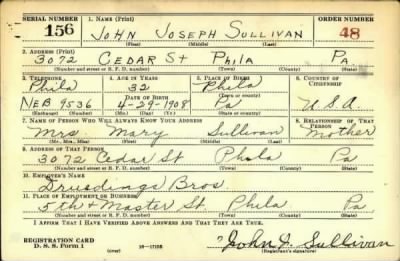 SERIAL NUMBER 1. NAME (Print) ORDER NUMBER
156 JOHN JOSEPH SULLIVAN 48
(First) (Middle) (Last)
2. ADDRESS (Print)
3072 CEDAR St Phila Pa
(Number and street or R. F. D. number) (Town) (County) (State)
3. TELEPHONE 4. AGE IN YEARS 5. PLACE OF BIRTH 6. COUNTRY OF CITIZENSHIP
Phila 32 Phila
DATE OF BIRTH (Town or county)
NEB 9536 4-29-1908 Pa U.S.A
(Exchange) (Number) (Mo.) (Day) (Yr.) (State or country)
7. NAME OF PERSON WHO WILL ALWAYS KNOW YOUR ADDRESS 8. RELATIONSHIP OF THAT PERSON
Mrs Mary Sullivan Mother
(Mr., Mrs., Miss) (First) (Middle) (Last)
9. ADDRESS OF THAT PERSON
3072 Cedar St Phila Pa
(Number and street or R. F. D. number) (Town) (County) (State)
10. EMPLOYER'S NAME
Drueding Bros
11. PLACE OF EMPLOYMENT OR BUSINESS
5th + Master St Phila Pa
(Number and street or R. F. D. number) (Town) (County) (State)
I AFFIRM THAT I HAVE VERIFIED ABOVE ANSWERS AND THAT THEY ARE TRUE.
REGISTRATION CARD
D. S. S. Form 1 (over) 16-17105
John J. Sullivan
(Registrant's signature)